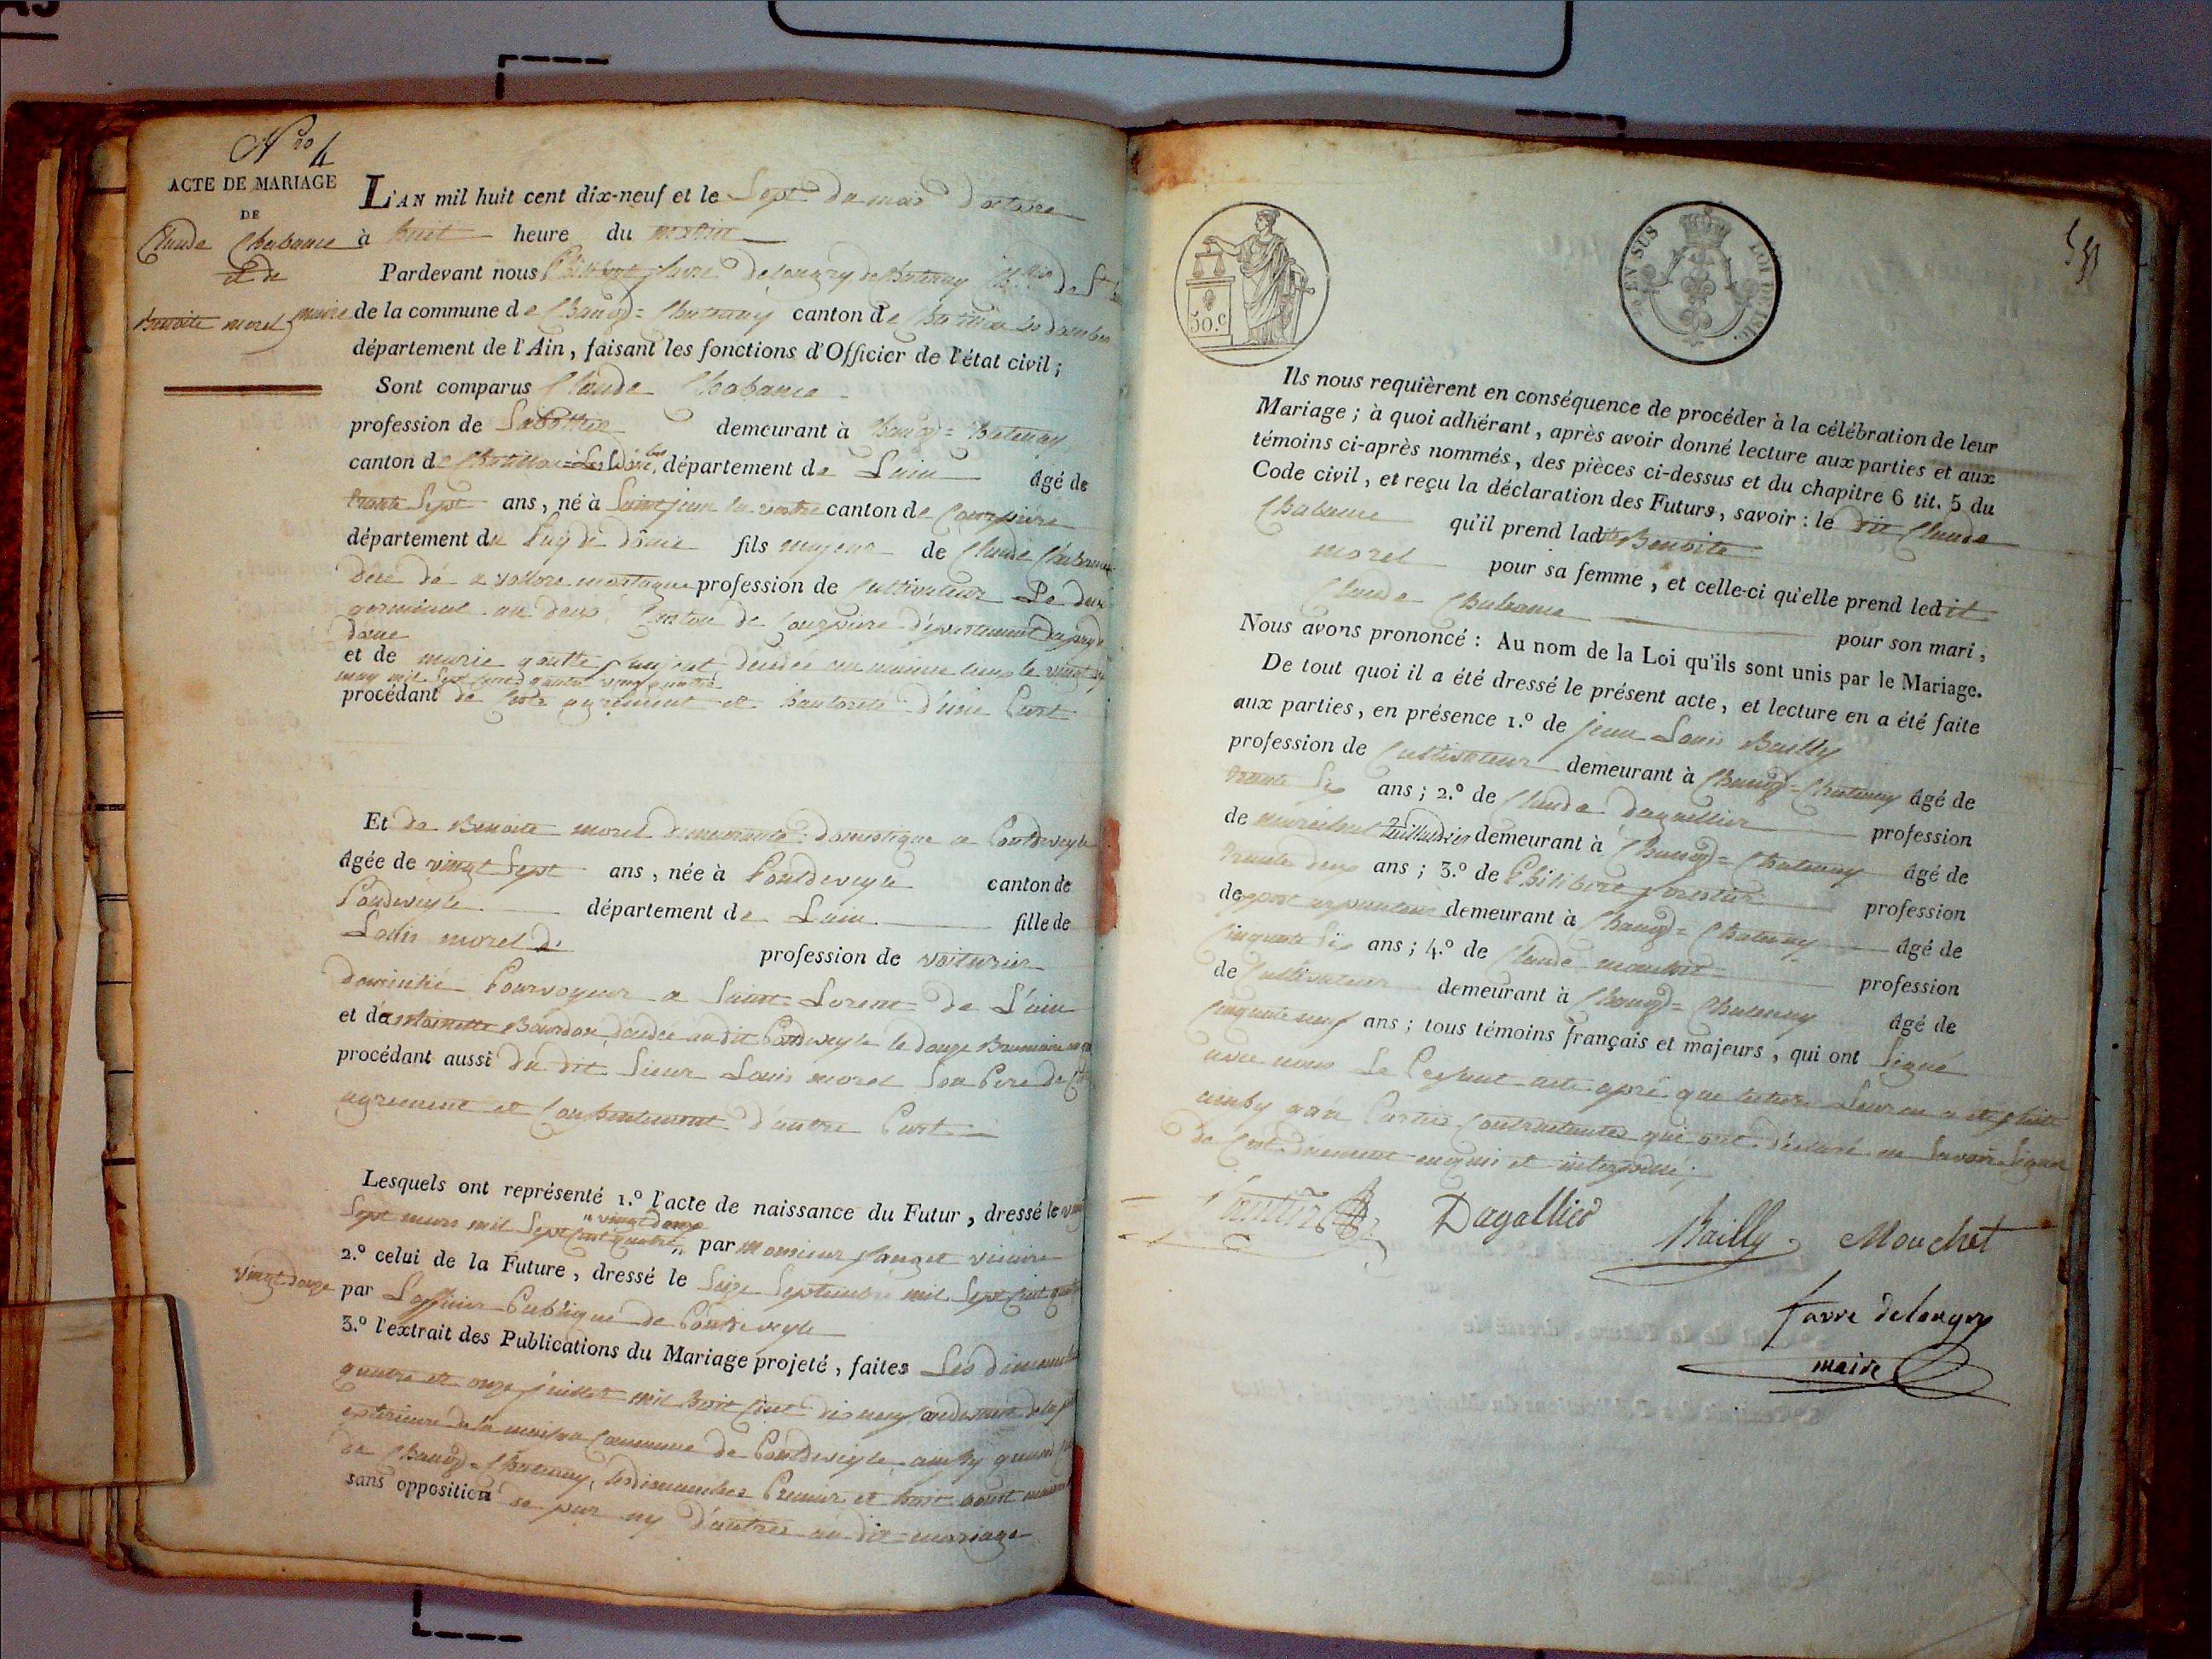 Nro 4
ACTE DE MARIAGE
DE
Claude Chabance
et de
Benoite morel
L'AN mil huit cent dix-neuf et le Sept du mois d'octobre
à huit heure du matin
Pardevant nous Philibert favre delongry de Chatenay
maire de la commune de Chanoz=Chatenay canton de Chatillon les dombes
département de l'Ain, faisant les fonctions d'Officier de l'état civil;
Sont comparus Claude Chabance
profession de Sabottier demeurant à Chanoz=Chatenay
canton de Chatillon=Les Dombes, département de Lain âgé de
trente Sept ans, né à Saint jean la vestre canton de Courpière
département du Puy de dôme fils majeur de Claude Chabance
Déce dé a vollore montagne profession de Cultivateur Le deux
germinal an deux, Canton de Courpière département du puy de
dôme
et de marie goutte décédée au même lieu le vingt
may mil Sept cent quatre vingt quatre
procédant de Son agrément et hautorité d'une Part
Et de Benoite morel demeurante domestique a Pontdeveyle
âgée de vingt Sept ans, née à Pontdeveyle canton de
Pondeveyle département de Lain fille de
Louis morel profession de voiturier
domicilié Pourvoyeur a Saint Lorent de L'ain
et de antoinette Bourdon, décédée au dit Pontdeveyle le douze Brumaire
procédant aussi du dit Sieur Louis morel Son Pere de Son
agrement et Consentement d'autre Part
Lesquels ont représenté 1.º l'acte de naissance du Futur, dressé le vingt
Sept mars mil Sept Cent quatre par monsieur vicaire
" vingt deux
2.º celui de la Future, dressé le Seize Septembre mil Sept Cent quatre
vingt douze par Lofficier Publique de Pontdeveyle
3.º l'extrait des Publications du Mariage projeté, faites Les dimanches
quatre et onze juillet mil huit Cent dix neuf audevant de la porte
exterieure de la maison Commune de Pontdeveyle ainsy quand
de Chanoz=Chatenay, les dimanches Premier et huit aoust
sans opposition de par ny D'autres au dit mariage
50.c
EN SUS
LOI DE 1816.
Ils nous requièrent en conséquence de procéder à la célébration de leur
Mariage; à quoi adhérant, après avoir donné lecture aux parties et aux
témoins ci-après nommés, des pièces ci-dessus et du chapitre 6 tit. 5 du
Code civil, et reçu la déclaration des Futurs, savoir: le dit Claude
Chabance qu'il prend ladite Benoite
morel pour sa femme, et celle-ci qu'elle prend ledit
Claude Chabance pour son mari,
Nous avons prononcé: Au nom de la Loi qu'ils sont unis par le Mariage.
De tout quoi il a été dressé le présent acte, et lecture en a été faite
aux parties, en présence 1.º de jean Louis Bailly
profession de Cultivateur demeurant à Chanoz=Chatenay âgé de
trente Six ans; 2.º de Claude Dagallier profession
de maréchal Taillandier demeurant à Chanoz=Chatenay âgé de
trente deux ans; 3.º de Philibert profession
de demeurant à Chanoz=Chatenay âgé de
Cinquante Six ans; 4.º de Claude mouchet profession
de Cultivateur demeurant à Chanoz=Chatenay âgé de
Cinquante neuf ans; tous témoins français et majeurs, qui ont Signé
avec nous Le Présent acte apré que lecture Leur en a été faite
ainsy aux Parties Contractantes qui ont déclaré ne Savoir Signer
de Ce duement enquis et interpellé.
Dagallier
Bailly
Mouchet
favre delongry
maire